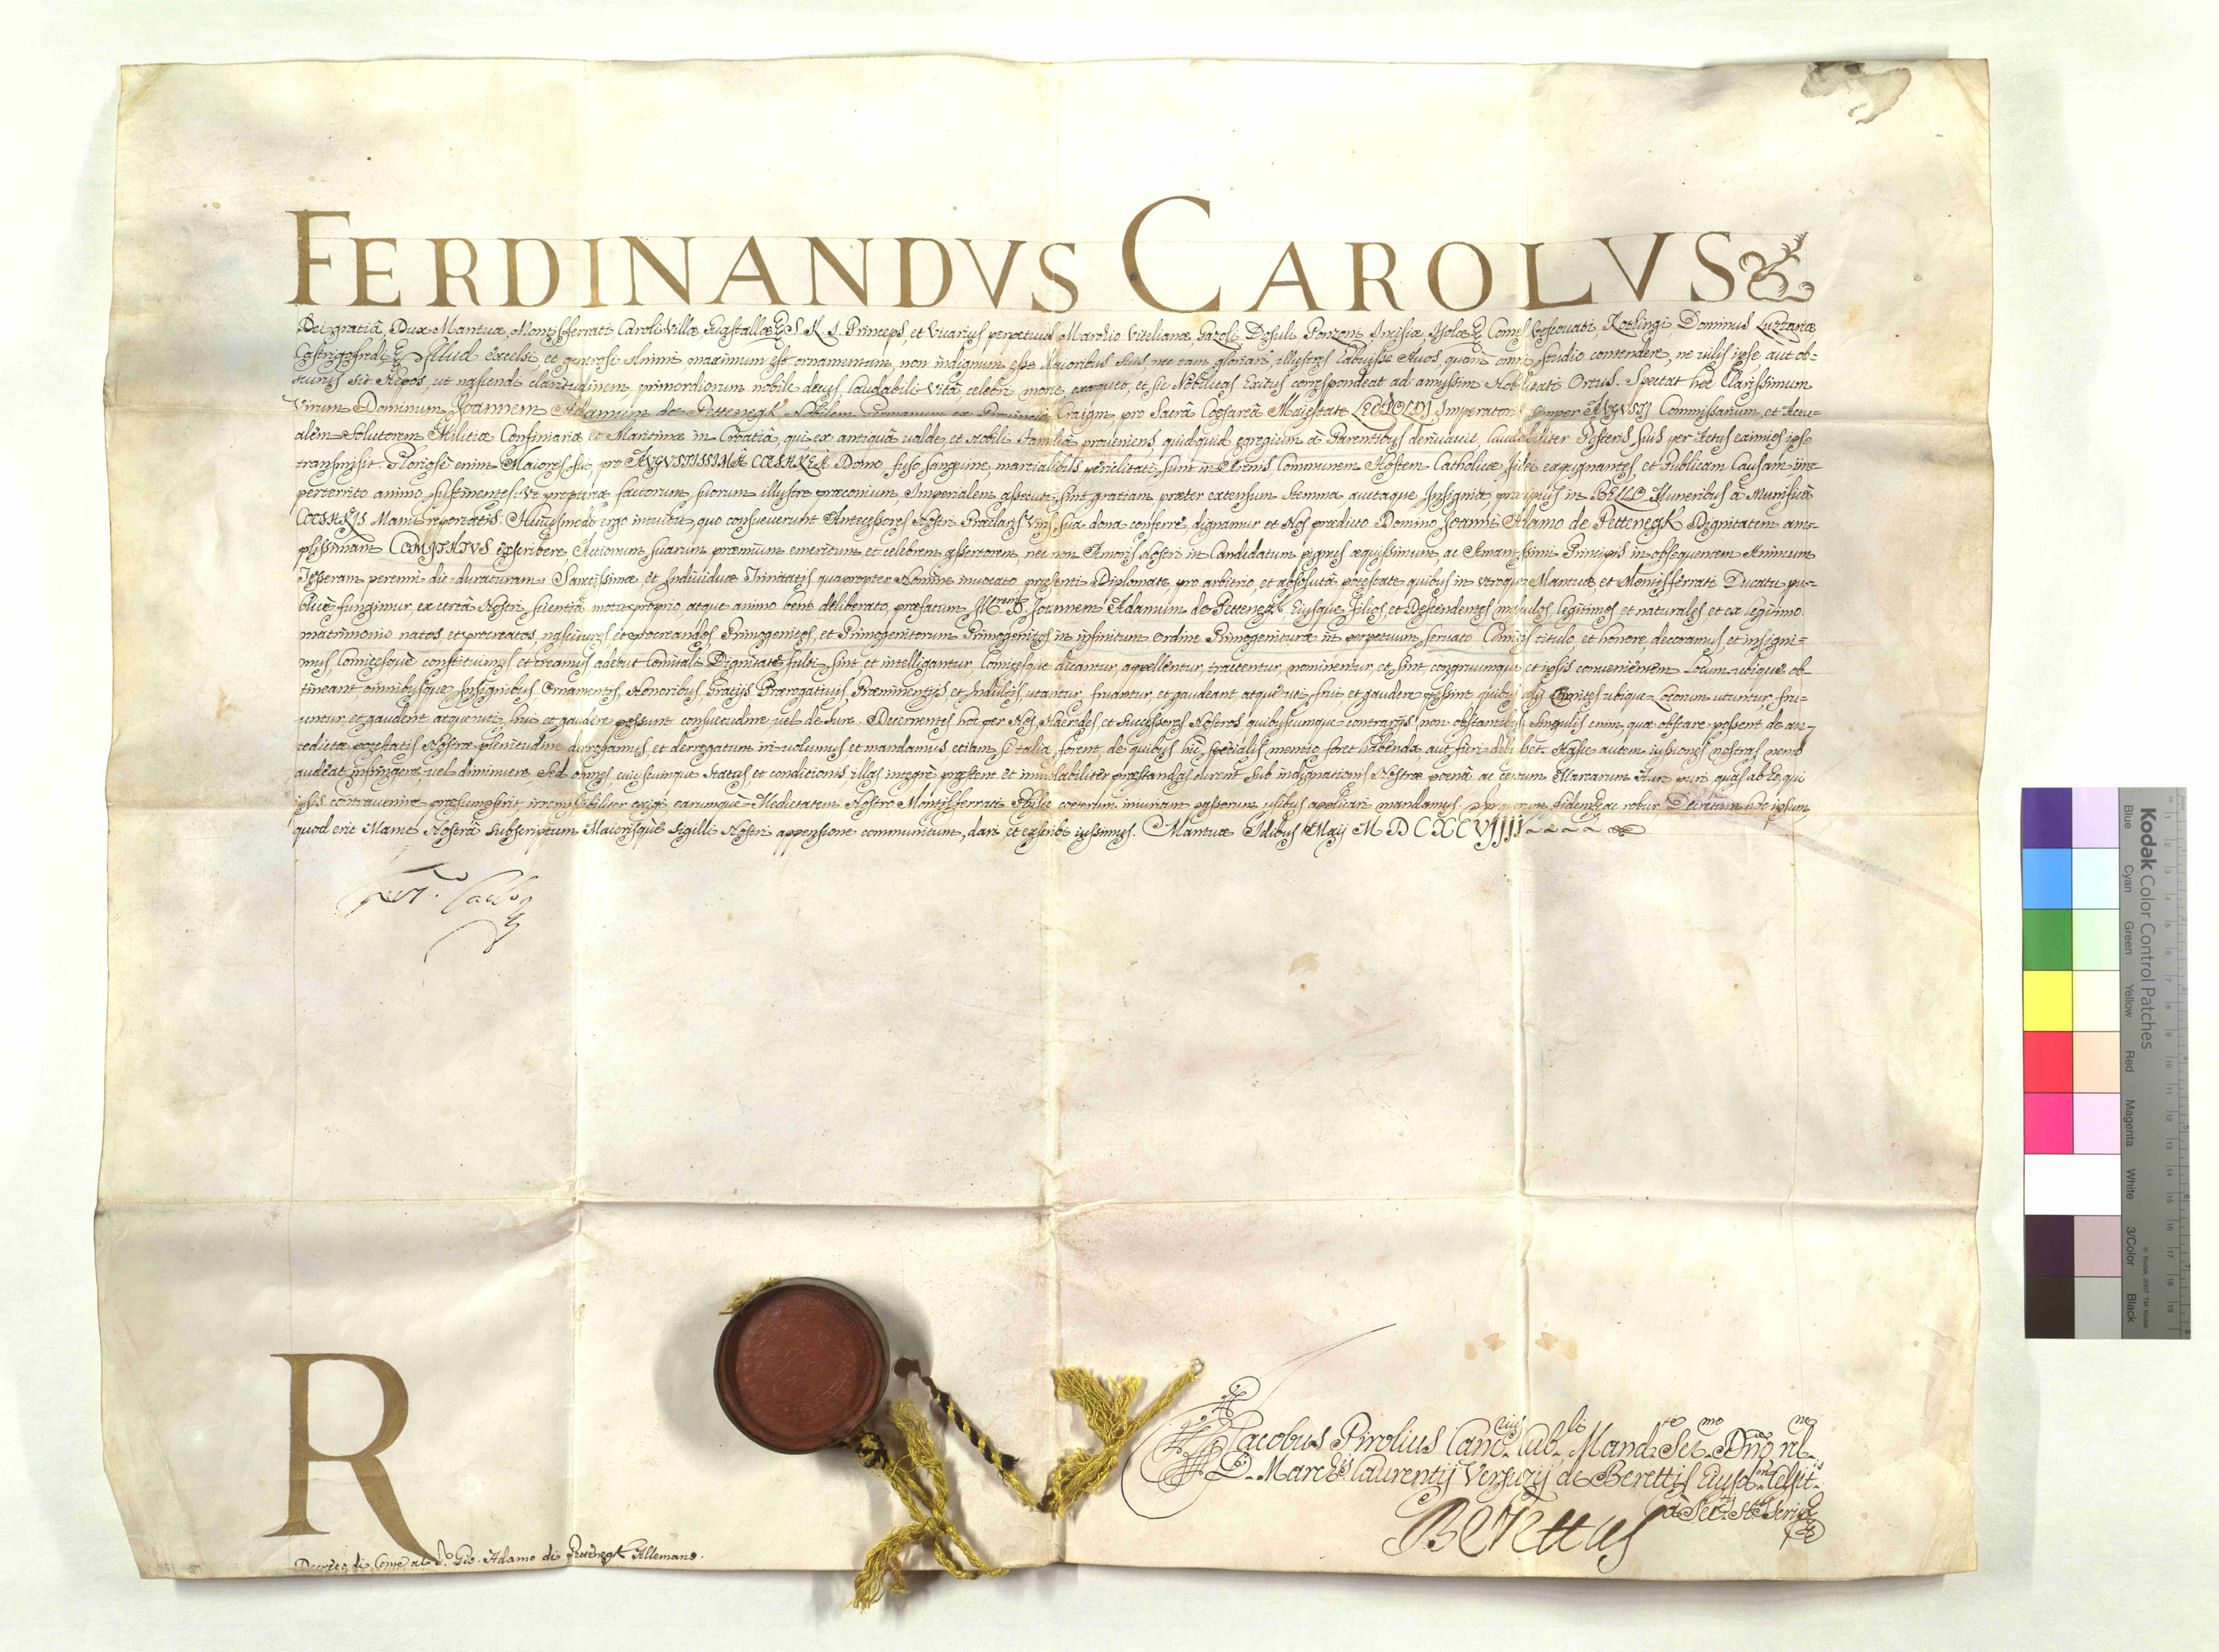 FERDINANDVS CAROLVS
Dei gratiâ, Dux Mantuæ, Montisferrati, Caroli Villæ, Guastallæ &, S. R. I. Princeps, et Vicarius perpetuus Marchio Vitelianæ, Gazoli, Dosuli, Ponzoni, Incisiæ, Isolæ &, Comes Rotingi, Dominus Luzzariæ
Castrigofredi & Illud excelsi, et generosi Animi maximum est ornamentum, non indignum esse Maioribus suis, nec tam gloriari, illustres habuisse Avos, quàm omni studio contendere, ne vilis ipse, aut ob-
scurus sit Nepos, ut nascendi claritudinem, primordiorum nobile decus, laudabili vitâ, celebri morte, exæquet, et sic Nobilitas Exitus correspondeat ad amyssim Nobilitati Ortus. Spectat hæc Clarissimum
Virum Dominum Joannem Adamum de Pettenegk Nobilem Germanum ex Provincia Craign, pro Sacrâ Cæsareâ Maiestate LEOPOLDI Imperatoris semper AVGVSTI Commissarium, et Actu-
alem Solutorem Militiæ Confiniariæ et Maritimæ in Croatiâ, qui ex antiquâ valde, et Nobili Familiâ proveniens, quidquid egregium à Parentibus derivavit, laudabiliter Posteris suis per Actus eximios ipse
transmisit. Gloriosè enim Maiores sui pro AVGVSTISSIMA CÆSAREA Domo, fuso sanguine, martialibus periclitati sunt in Arenis Communem Hostem Catholicæ fidei expugnantes, et Publicam Causam im-
perterrito animo sustinentes: Vt proptereà factorum suorum illustre præconium, Imperialem assecuti sint gratiam, præter extensum stemma, auctaque Insignia, præcipuis in BELLO Muneribus à Munificâ
CÆSARIS Manu reportatis. Huiusmodi ergo intuitu, quo consueverunt Antecessores Nostri Præclaris Viris sua dona conferre, dignamur et Nos prædicto Domino Joanni Adamo de Pettenegk Dignitatem am-
plissimam COMITATVS Actionum suarum præmium emeritum, et celebrem assertorem, nec non Amoris Nostri in Candidatum pignus æquissimum, ac Amantissimi Principis in obsequentem Animum
Tesseram perenni die duraturam. Sanctissimæ, et Individuæ Trinitatis quapropter Nomine invocato præsenti Diplomate, pro arbitrio, et absolutâ potestate quibus in utroque Mantuæ, et Montisferrati Ducatu pu-
blicè fungimur, ex certâ Nostri scientiâ motu proprio, atque animo bene deliberato, præfatum D. Joannem Adamum de Pettenegk Eiusque filios, et Descendentes masculos, legitimos et naturales, et ex legitimo
matrimonio natos, et procreatos, nascituros et procreandos Primogenitos, et Primogenitorum Primogenitos in infinitum ordine Primogenituræ in perpetuum servato Comitis titulo, et honore, decoramus, et insigni-
mus, Comitesque constituimus et creamus, adeout Comitali Dignitate fulti sint et intelligantur Comitesque dicantur, appellentur, tractentur, nominentur, et sint, congruumque et ipsis convenientem Locum ubique ob-
tineant omnibusque Insignibus Ornamentis, Honoribus, Gratijs Prærogativis, Præeminentijs, et Indultis, utantur, fruantur, et gaudeant atque uti, frui, et gaudere possint quibus alij Comites ubique Locorum utuntur, fru-
untur, et gaudent atque uti, frui et gaudere possunt consuetudine, vel de Iure. Decernentes hoc per Nos, Hæredes, et Successores Nostros, quibuscumque contrarijs non obstantibus Singulis enim, quæ obstare possent, de an-
tedictæ potestatis Nostræ plenitudine derrogamus et derrogatum iri volumus et mandamus, etiam si talia forent de quibus hic specialis mentio foret habenda, aut fieri debuisset. Hasce autem iussiones nostras nemo
audeat infringere, vel diminuere, sed omnes cuiuscumque status, et conditionis, illas integrè præstent, et inviolabiliter præstandas curent sub indignationis Nostræ pœnâ ac centum Marcarum Auri puri, quas ab Eo, qui
ipsis contravenire præsumpserit, irremisibiliter exigi earumque Medietatem Nostro Montisferrati cœterum iniuriam passorum usibus applicari mandamus. In quorum fidem, ac robur Decretum hoc ipsum,
quod erit Manu Nostrâ subscriptum, Maiorisque Sigilli Nostri appensione communitum, dari, et exscribi iussimus. Mantuæ Idibus Maij MDCXCVIIII
R
Jacobus Pirolius Canc. Cub. Mand. Ser. Dno
D. March. Laurentij Versuzij de Berettis Eiusd. Celsit.
Berettus
Decreto di Conte al Gio. Adamo di Pettenegk Allemano.
Kodak Color Control Patches
Blue Cyan Green Yellow Red Magenta White 3/Color Black